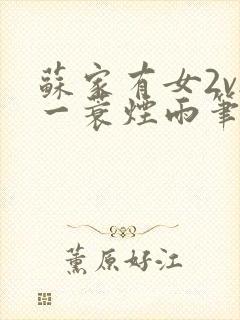 蘇家有女2v
一蓑煙雨筆
薰原好江